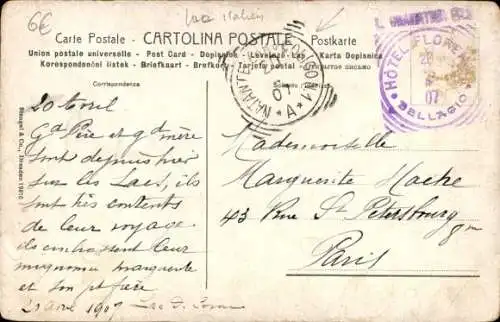 6€ Lac Italien
Carte Postale - CARTOLINA POSTALE - Postkarte
Union postale universelle - Post Card - Dopisnica - Levelező-Lap -
Korespondenční listek - Briefkaart - Brefkort - Tarjeta postal
HÔTEL FLORE
BELLAGIO
07
NATANTE
07
A
Correspondenza
Stengel & Co., Dresden
20 avril
Gd Père et gd mère
sont depuis hier
sur les Lacs, ils
sont très contents
de leur voyage
ils embrassent leur
mignonne marguerite
et son pt frère
21 avril 1907 Lac de Come
Mademoiselle
Marguerite Hache
43 Rue St Petersbourg
Paris